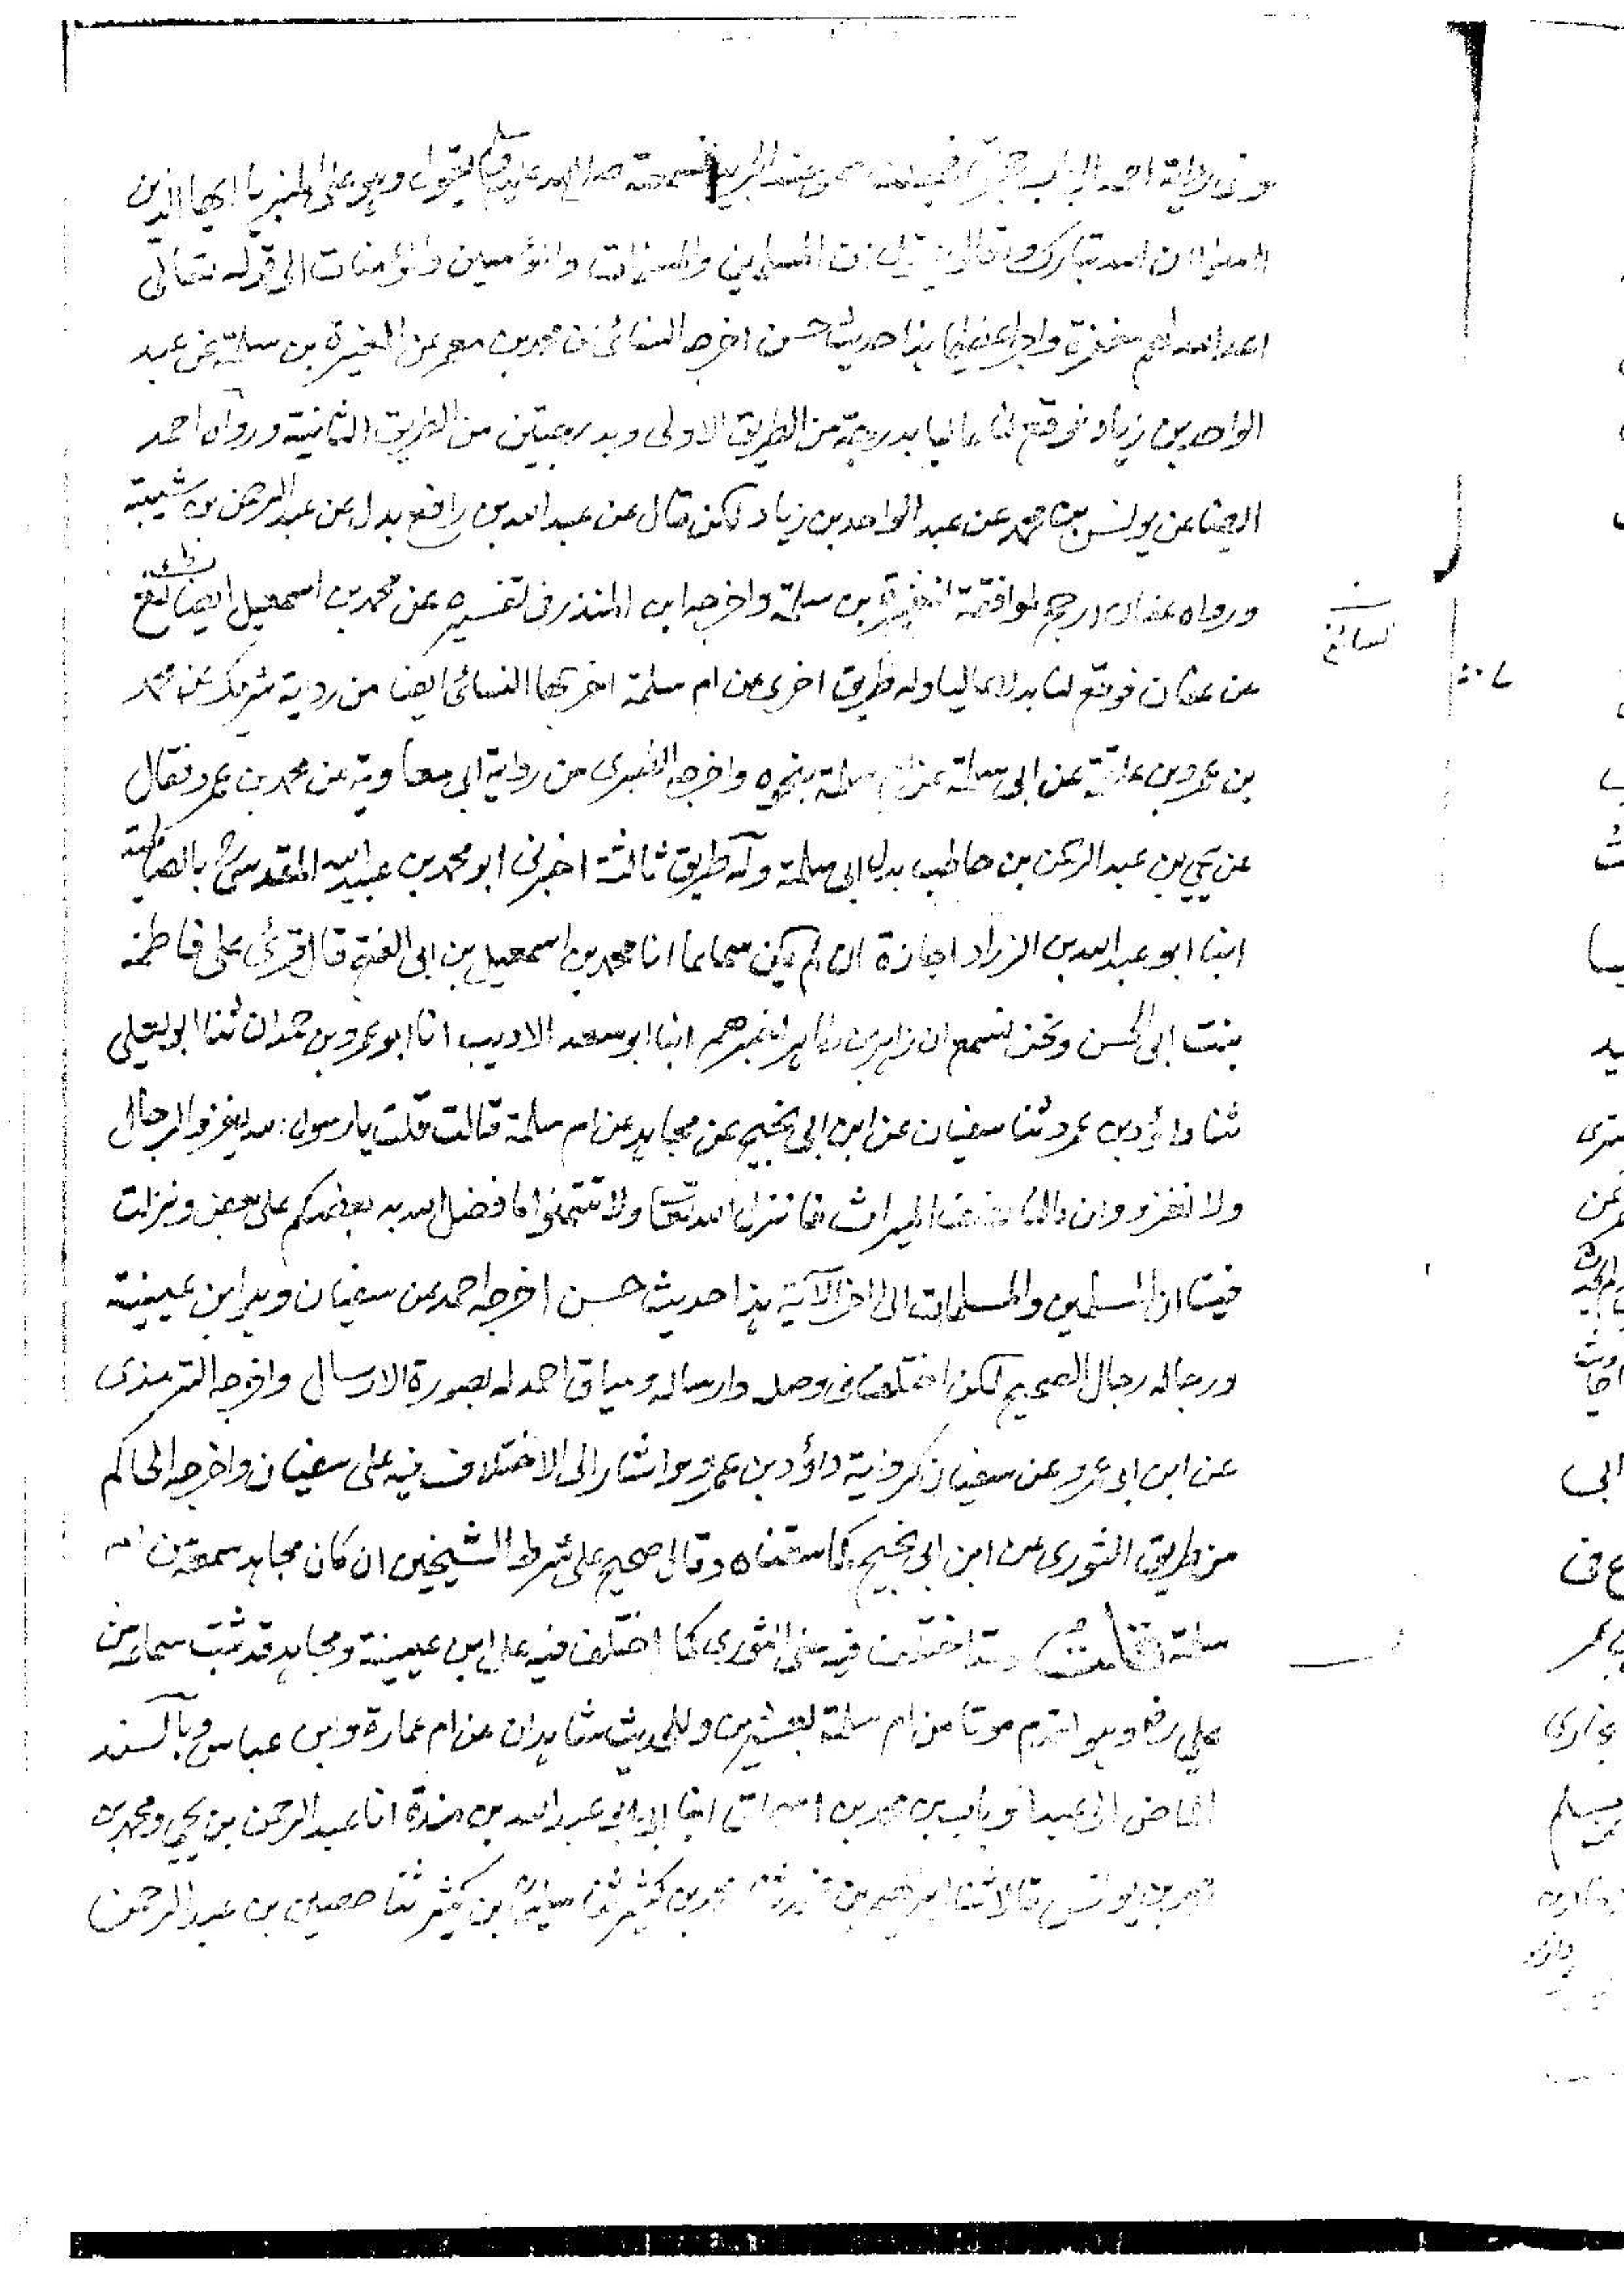 وفى رواية احمد الى الباب عند الجريد فسمعته صلى الله عليه وسلم يقول وهو على المنبر يا ايها الذين
امنوا ان الله تبارك وتعالى يقول ان المسلمين والمسلمات والمؤمنين والمؤمنات الى قوله تعالى
اعد الله لهم مغفرة واجرا عظيما هذا حديث حسن اخرجه النسائى عن محمد بن معمر عن المغيرة بن سلمة عن عبد
الواحد بن زياد فوقع لنا عاليا بدرجة من الطريق الاولى وبدرجتين من الطريق الثانية ورواه احمد
ايضا عن يونس بن محمد عن عبد الواحد بن زياد لكن قال عن عبد الله بن رافع بدل عن عبد الرحمن بن شيبة
ورواه عفان ارجح لموافقة المغيرة بن سلمة واخرجه ابن المنذر فى تفسيره عن محمد بن اسمعيل الصائغ
عن عفان فوقع لنا بدلا عاليا وله طريق اخرى عن ام سلمة اخرجها النسائى ايضا من رواية شريك عن محمد
بن عمرو بن علقمة عن ابى سلمة عن ام سلمة بنحوه واخرجه الطبرى من رواية ابى معاوية عن محمد بن عمرو فقال
عن يحيى بن عبد الرحمن بن حاطب بدل ابى سلمة وله طريق ثالثة اخبرنى ابو محمد بن عبيد الله المقدسى بالصالحية
ابنا ابو عبد الله بن الزراد اجازة ان لم يكن سماعا انا محمد بن اسمعيل بن ابى الفتح قال قرئ على فاطمة
بنت ابى الحسن ونحن نسمع ان زاهر بن طاهر اخبرهم ابنا ابو سعد الاديب انا ابو عمرو بن حمدان ثنا ابو يعلى
ثنا داؤد بن عمرو ثنا سفيان عن ابن ابى نجيح عن مجاهد عن ام سلمة قالت قلت يا رسول الله يغزو الرجال
ولا نغزو وان مالنا نصف الميراث فانزل الله تعا ولا تتمنوا ما فضل الله به بعضكم على بعض ونزلت
فينا ان المسلمين والمسلمات الى اخر الآية هذا حديث حسن اخرجه احمد عن سفيان وهو ابن عيينة
ورجاله رجال الصحيح لكن اختلف فى وصله وارساله وسياق احمد له بصورة الارسال واخرجه الترمذى
عن ابن ابى عمرو عن سفيان كرواية داؤد بن عمرو واشار الى الاختلاف فيه على سفيان واخرجه الحاكم
من طريق الثورى عن ابن ابى نجيح كما سقناه وقال صحيح على شرط الشيخين ان كان مجاهد سمعه من ام
سلمة قلت وقد اختلف فيه على الثورى كما اختلف فيه على ابن عيينة ومجاهد قد ثبت سماعه من
على رض وهو اقدم موتا من ام سلمة بعشرين وللحديث شاهدان عن ام عمارة وابن عباس وبالسند
الماضى الى عبد الوهاب بن محمد بن اسحاق ابنا ابى ابو عبد الله بن مندة انا عبد الرحمن بن يحيى ومحمد بن
محمد بن يونس قالا ثنا ابراهيم بن فهد ثنا محمد بن كثير ثنا سليمان بن كثير ثنا حصين بن عبد الرحمن
الصائغ